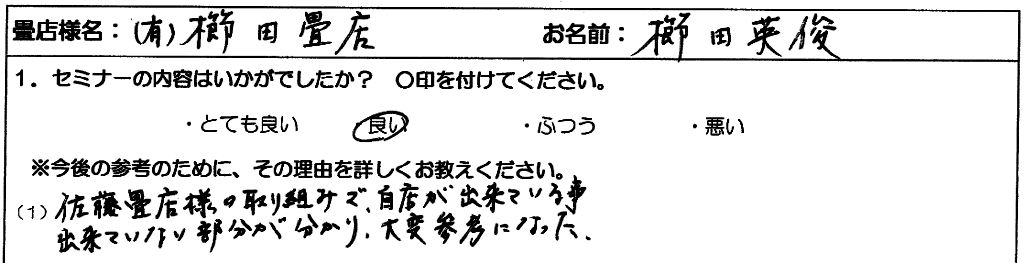 畳店様名：(有)櫛田畳店 お名前：櫛田英俊
1．セミナーの内容はいかがでしたか？ ○印を付けてください。
・とても良い ・良い ・ふつう ・悪い
※今後の参考のために、その理由を詳しくお教えください。
(1) 佐藤畳店様の取り組みで、自店が出来ている事
出来ていない部分が分かり、大変参考になった。